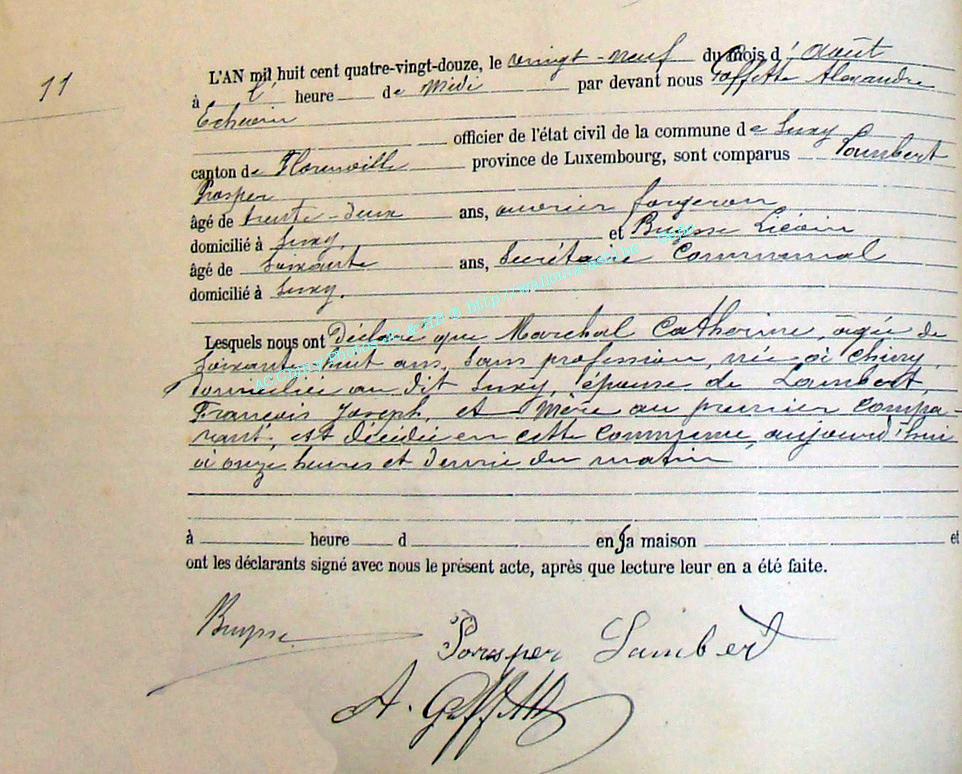 11
L'AN mil huit cent quatre-vingt-douze, le vingt-neuf du mois d'Août
à l' heure de Midi par devant nous Goffette Alexandre
Echevin
officier de l'état civil de la commune de Suxy
canton de Florenville province de Luxembourg, sont comparus Lambert
Prosper
âgé de trente-deux ans, ouvrier forgeron
domicilié à Suxy. et Buysse Liévin
âgé de soixante ans, Secrétaire Communal
domicilié à Suxy.
Lesquels nous ont Déclaré que Marchal Catherine, âgée de
soixante huit ans, sans profession, née à Chiny,
domiciliée au dit Suxy, épouse de Lambert,
François Joseph, et Mère au premier compa-
rant, est décédée en cette Commune, aujourd'hui
à onze heures et demie du matin
à heure d en sa maison et
ont les déclarants signé avec nous le présent acte, après que lecture leur en a été faite.
Buysse
Prosper Lambert
A. Goffette